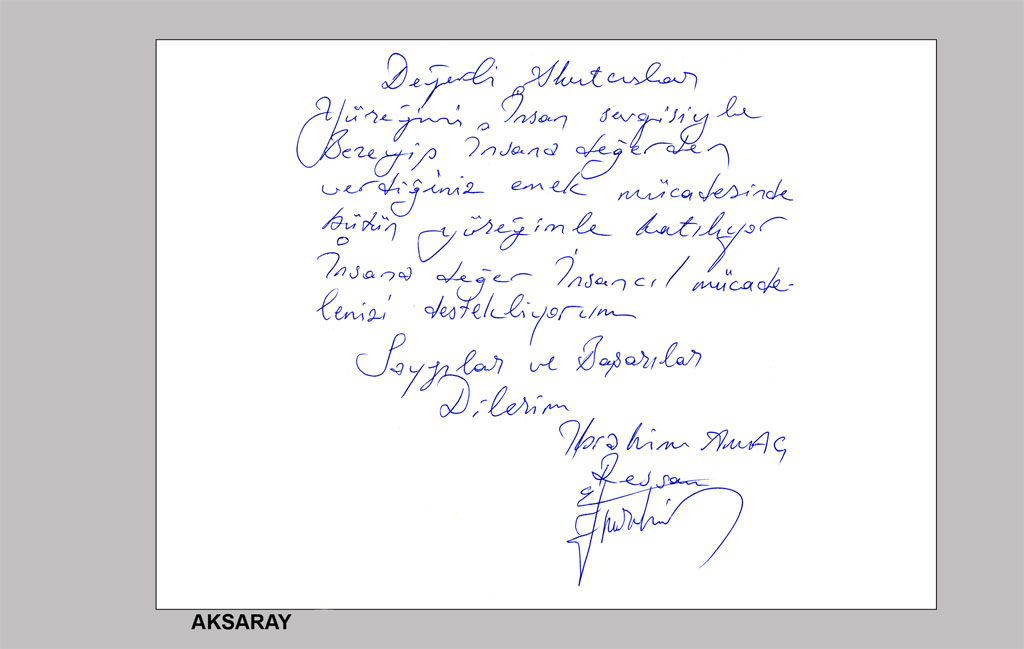 Değerli Akutcular
Yüreğinizi İnsan sevgisiyle
Bezeyip İnsana değerden
verdiğiniz emek mücadesinde
bütün yüreğimle katılıyor
İnsana değer İnsancıl mücade-
lenizi destekliyorum
Saygılar ve Başarılar
Dilerim
İbrahim AMAÇ
Ressam
AKSARAY